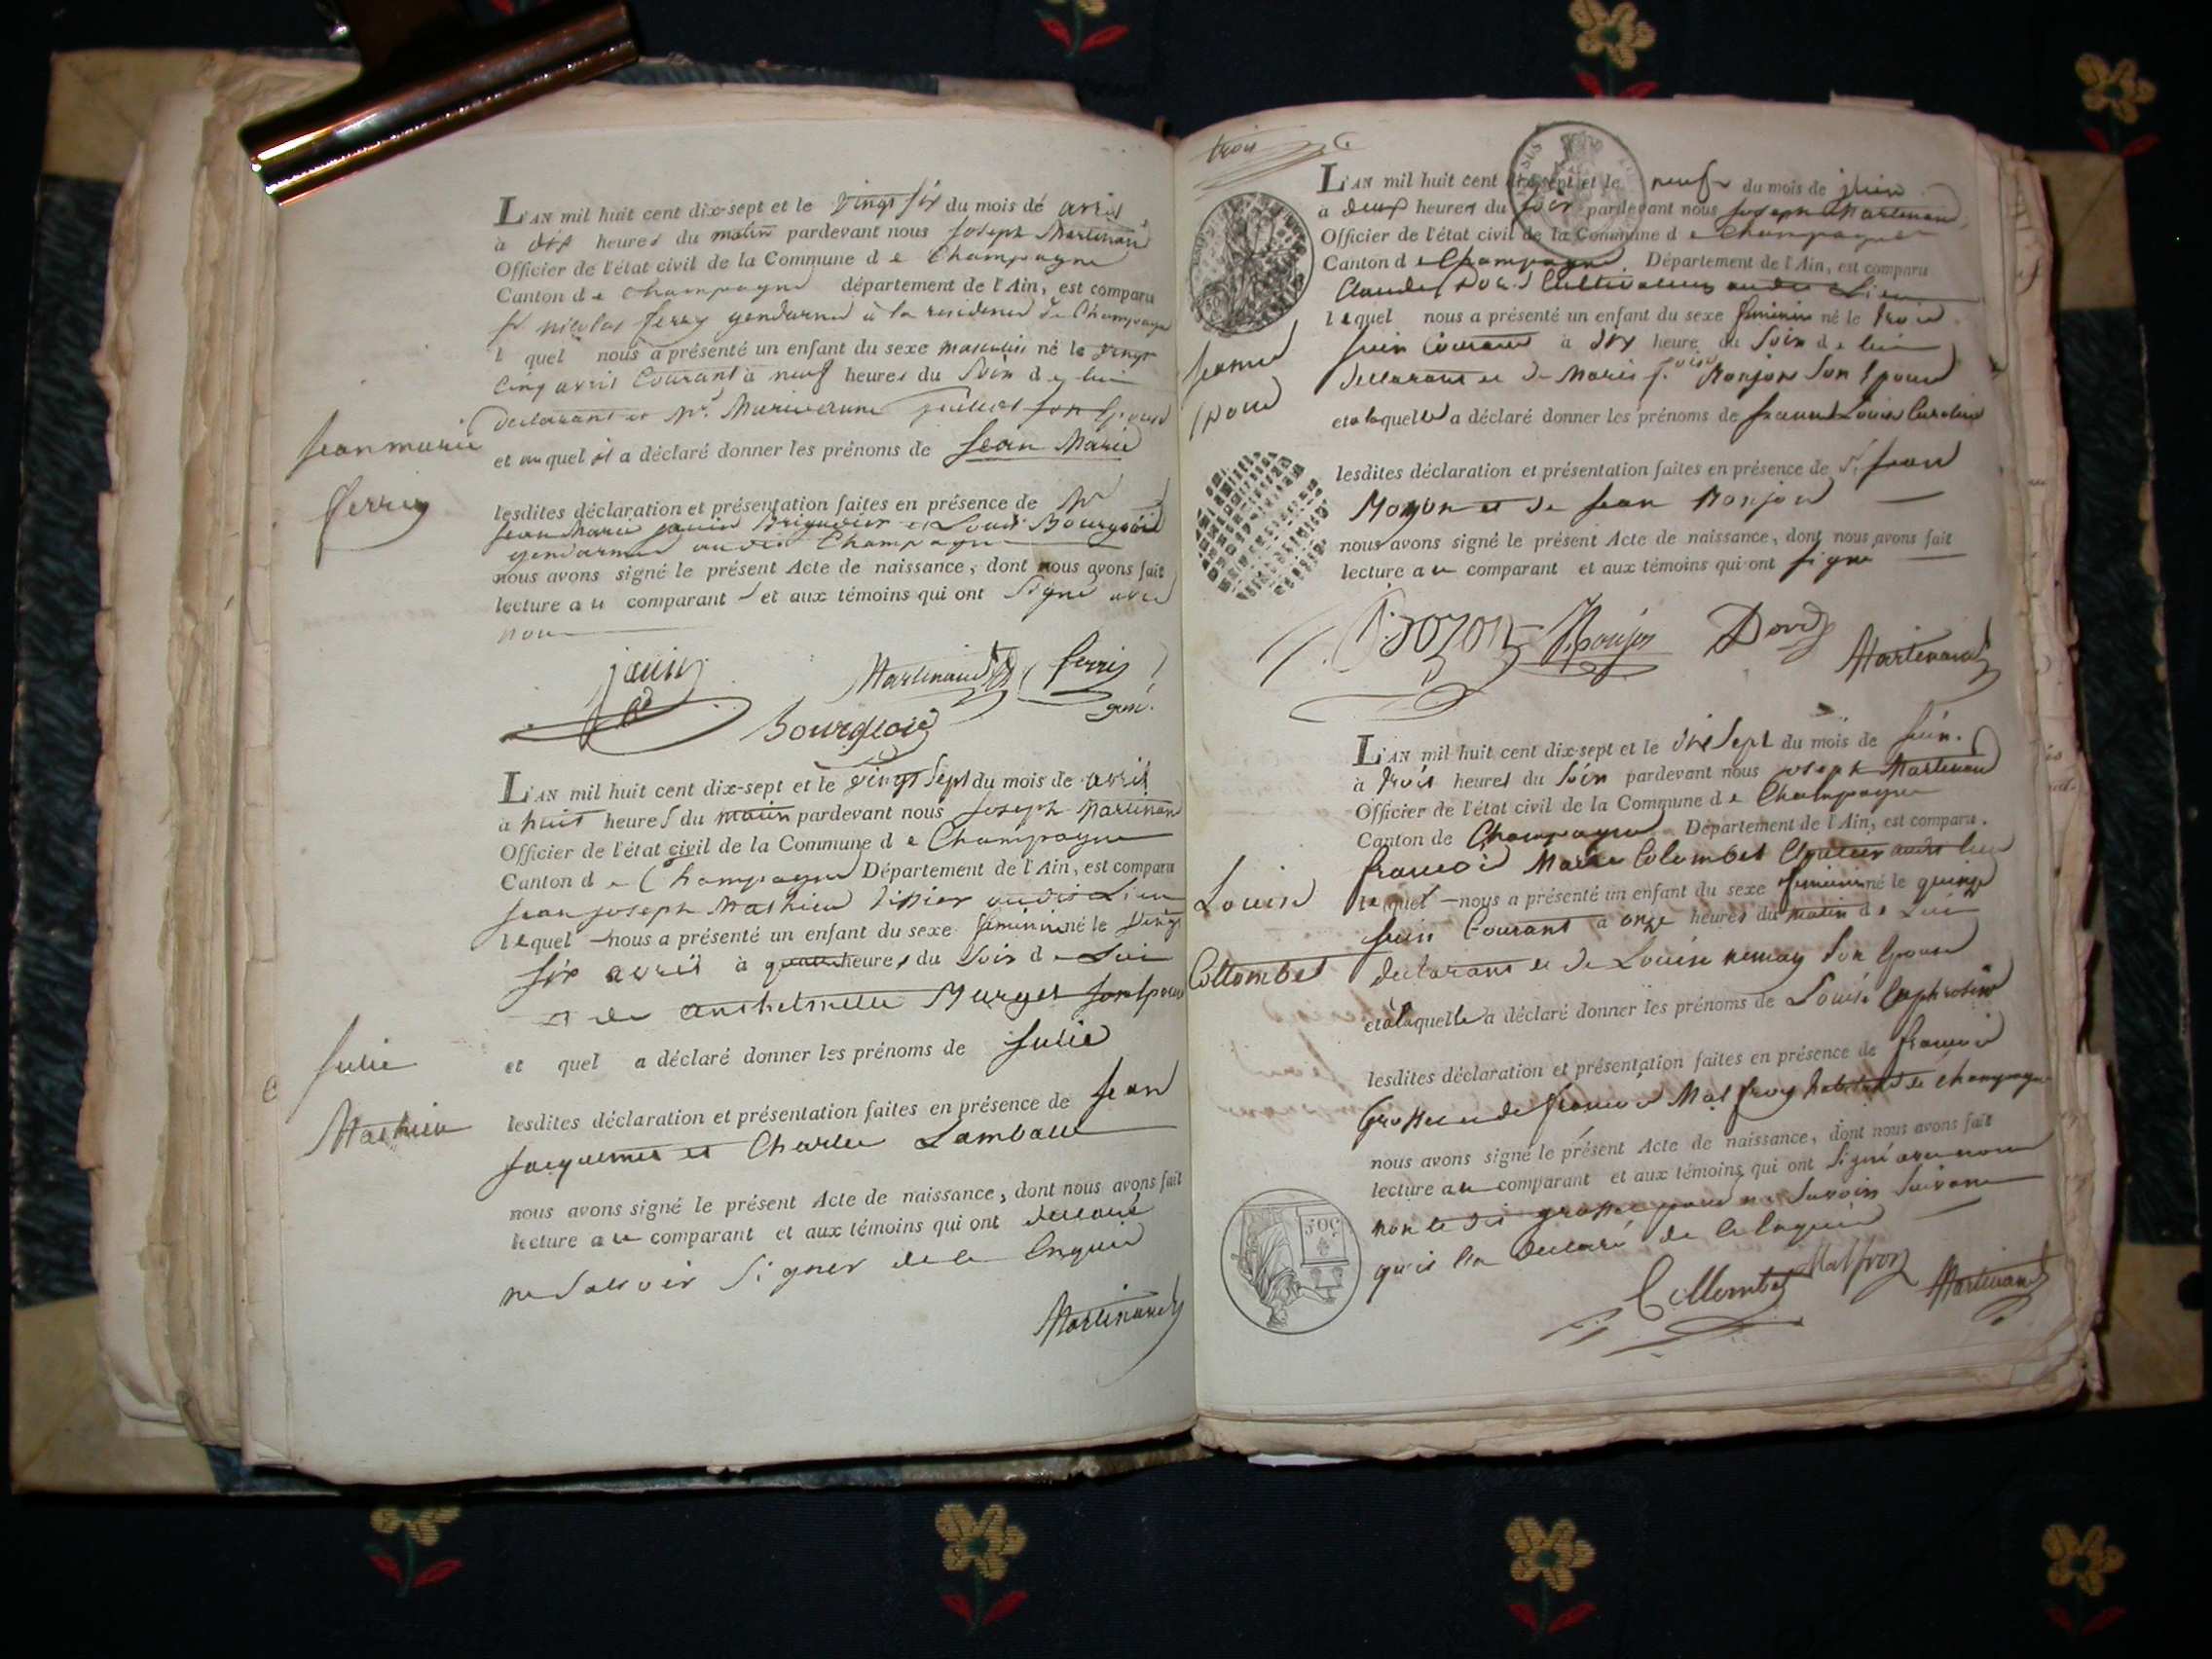 L'AN mil huit cent dix-sept et le vingt six du mois de avril
à dix heures du matin pardevant nous joseph Martinand
Officier de l'état civil de la Commune d e Champagne
Canton d e Champagne département de l'Ain, est comparu
Sr nicolas ferry gendarme à la residence de Champagne
l quel nous a présenté un enfant du sexe masculin né le vingt
Cinq avril Courant à neuf heures du Soir d e lui
declarant et Marieanne son Epouse
et au quel il a déclaré donner les prénoms de Jean Marie
lesdites déclaration et présentation faites en présence de Sr
Jean Marie janin Brigadier et Louis Bourgeois
gendarme audit Champagne
nous avons signé le présent Acte de naissance, dont nous avons fait
lecture a u comparant et aux témoins qui ont Signé avec
nous
Jean marie
ferry
janin
Martinand
ferry
Bourgeois
gen.
L'AN mil huit cent dix-sept et le vingt Sept du mois de avril
à huit heures du matin pardevant nous Joseph Martinand
Officier de l'état civil de la Commune d e Champagne
Canton d e Champagne Département de l'Ain, est comparu
Jean joseph Mathieu tissier audit Lieu
l e quel nous a présenté un enfant du sexe feminin né le vingt
Six avril à quatre heures du Soir d e Lui
et de anthelmette Murget son Epouse
et quel a déclaré donner les prénoms de Julie
lesdites déclaration et présentation faites en présence de Jean
Jacquemet et Charles Lamballe
nous avons signé le présent Acte de naissance, dont nous avons fait
lecture a u comparant et aux témoins qui ont declaré
ne Savoir Signer de ce Enquis
Julie
Mathieu
Martinand
trois
L'AN mil huit cent dix-sept et le neuf du mois de juin
à deux heures du soir pardevant nous joseph Martinand
Officier de l'état civil de la Commune d e Champagne
Canton d e Champagne Département de l'Ain, est comparu
Claude Cultivateur audit Lieu
l e quel nous a présenté un enfant du sexe feminin né le trois
Juin Courant à dix heure du Soir d e lui
declarant et de Marie f.oise Monjon Son Epouse
et a laquelle a déclaré donner les prénoms de Jeanne Louise Caroline
lesdites déclaration et présentation faites en présence de Sr Jean
Bozon et de Jean Monjon
nous avons signé le présent Acte de naissance, dont nous avons fait
lecture a u comparant et aux témoins qui ont signé
Jeanne
Bozon
Monjon
Martinand
L'AN mil huit cent dix-sept et le dix Sept du mois de Juin.
à trois heures du Soir pardevant nous joseph Martinand
Officier de l'état civil de la Commune d e Champagne
Canton de Champagne Département de l'Ain, est comparu.
francois Marie Colombet Cloutier audit lieu
le quel nous a présenté un enfant du sexe feminin né le quinze
Juin Courant à onze heures du matin d e Lui
declarant et de Louise nemoz Son Epouse
et a laquelle a déclaré donner les prénoms de Louise Euphrosine
lesdites déclaration et présentation faites en présence de francois
Grosset et de francois Malfroy habitant de champagne
nous avons signé le présent Acte de naissance, dont nous avons fait
lecture a u comparant et aux témoins qui ont Signé avec nous
non le dit grosset pour ne Savoir Suivant
qu'il l'a declaré de ce Enquis
Louise
Collombet
50C
Collombet
Malfroy
Martinand